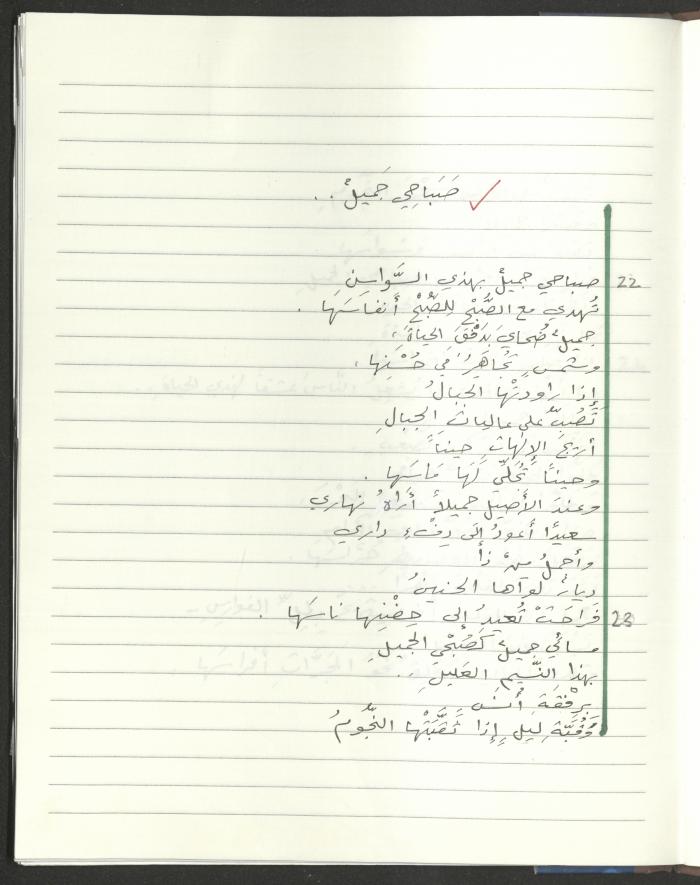 صَبَاحِي جَمِيلٌ . .
22 صباحي جميلٌ بهذي السَّواسِنِ
تُهدي مع الصُّبْحِ لِلصُّبْحِ أَنفَاسَهَا .
جميلٌ ضُحايَ بِدَفْقِ الحياةِ،
وشمسٍ تُجَاهِرُ في حُسْنِها،
إِذا راودتْها الجبالُ
تَصُبُّ على عالياتِ الجبالِ
أريجَ الإلهاتِ حيناً
وحيناً تُخَلِّي لَهَا مَاسَها .
وعندَ الأَصيلِ جميلاً أَرَاهُ نهاري
سعيدًا أعودُ إلى دِفْءِ داري
وأحملُ مِنْ ذا
ديارٌ لواها الحنينُ
23 فَرَاحَتْ تُعيدُ إلى حِضْنِها ناسَها .
مسائي جميلٌ كَصُبْحي الجميلِ
بهذا النَّسيمِ العَليلِ . .
بِرِفْقَةِ أُنسٍ
وَقُبَّةِ ليلٍ إِذا ثَقَّبَتْها النُّجومُ